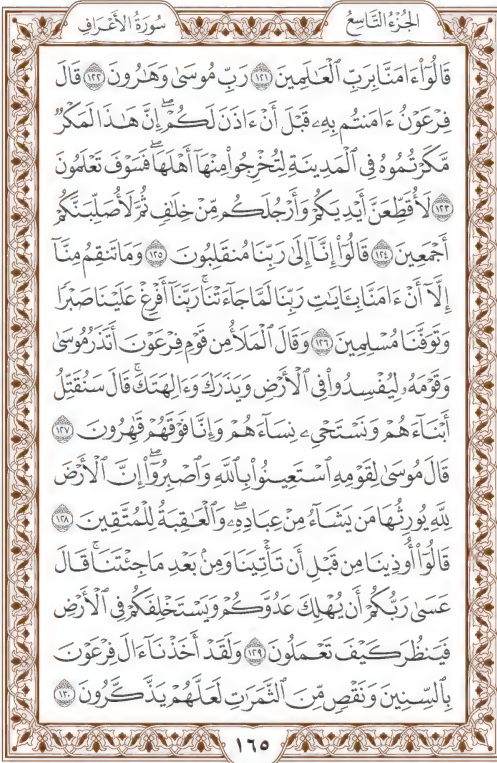 سُورَةُ الأَعْرَافِ
الجُزْءُ التَّاسِعُ
قَالُوٓاْ ءَامَنَّا بِرَبِّ ٱلْعَٰلَمِينَ ١٢١ رَبِّ مُوسَىٰ وَهَٰرُونَ ١٢٢ قَالَ
فِرْعَوْنُ ءَامَنتُم بِهِۦ قَبْلَ أَنْ ءَاذَنَ لَكُمْۖ إِنَّ هَٰذَا لَمَكْرٌ
مَّكَرْتُمُوهُ فِي ٱلْمَدِينَةِ لِتُخْرِجُواْ مِنْهَآ أَهْلَهَاۖ فَسَوْفَ تَعْلَمُونَ
١٢٣ لَأُقَطِّعَنَّ أَيْدِيَكُمْ وَأَرْجُلَكُم مِّنْ خِلَٰفٍ ثُمَّ لَأُصَلِّبَنَّكُمْ
أَجْمَعِينَ ١٢٤ قَالُوٓاْ إِنَّآ إِلَىٰ رَبِّنَا مُنقَلِبُونَ ١٢٥ وَمَا تَنقِمُ مِنَّآ
إِلَّآ أَنْ ءَامَنَّا بِـَٔايَٰتِ رَبِّنَا لَمَّا جَآءَتْنَاۚ رَبَّنَآ أَفْرِغْ عَلَيْنَا صَبْرًا
وَتَوَفَّنَا مُسْلِمِينَ ١٢٦ وَقَالَ ٱلْمَلَأُ مِن قَوْمِ فِرْعَوْنَ أَتَذَرُ مُوسَىٰ
وَقَوْمَهُۥ لِيُفْسِدُواْ فِي ٱلْأَرْضِ وَيَذَرَكَ وَءَالِهَتَكَۚ قَالَ سَنُقَتِّلُ
أَبْنَآءَهُمْ وَنَسْتَحْيِۦ نِسَآءَهُمْ وَإِنَّا فَوْقَهُمْ قَٰهِرُونَ ١٢٧
قَالَ مُوسَىٰ لِقَوْمِهِ ٱسْتَعِينُواْ بِٱللَّهِ وَٱصْبِرُوٓاْۖ إِنَّ ٱلْأَرْضَ
لِلَّهِ يُورِثُهَا مَن يَشَآءُ مِنْ عِبَادِهِۦۖ وَٱلْعَٰقِبَةُ لِلْمُتَّقِينَ ١٢٨
قَالُوٓاْ أُوذِينَا مِن قَبْلِ أَن تَأْتِيَنَا وَمِنۢ بَعْدِ مَا جِئْتَنَاۚ قَالَ
عَسَىٰ رَبُّكُمْ أَن يُهْلِكَ عَدُوَّكُمْ وَيَسْتَخْلِفَكُمْ فِي ٱلْأَرْضِ
فَيَنظُرَ كَيْفَ تَعْمَلُونَ ١٢٩ وَلَقَدْ أَخَذْنَآ ءَالَ فِرْعَوْنَ
بِٱلسِّنِينَ وَنَقْصٍ مِّنَ ٱلثَّمَرَٰتِ لَعَلَّهُمْ يَذَّكَّرُونَ ١٣٠
١٦٥